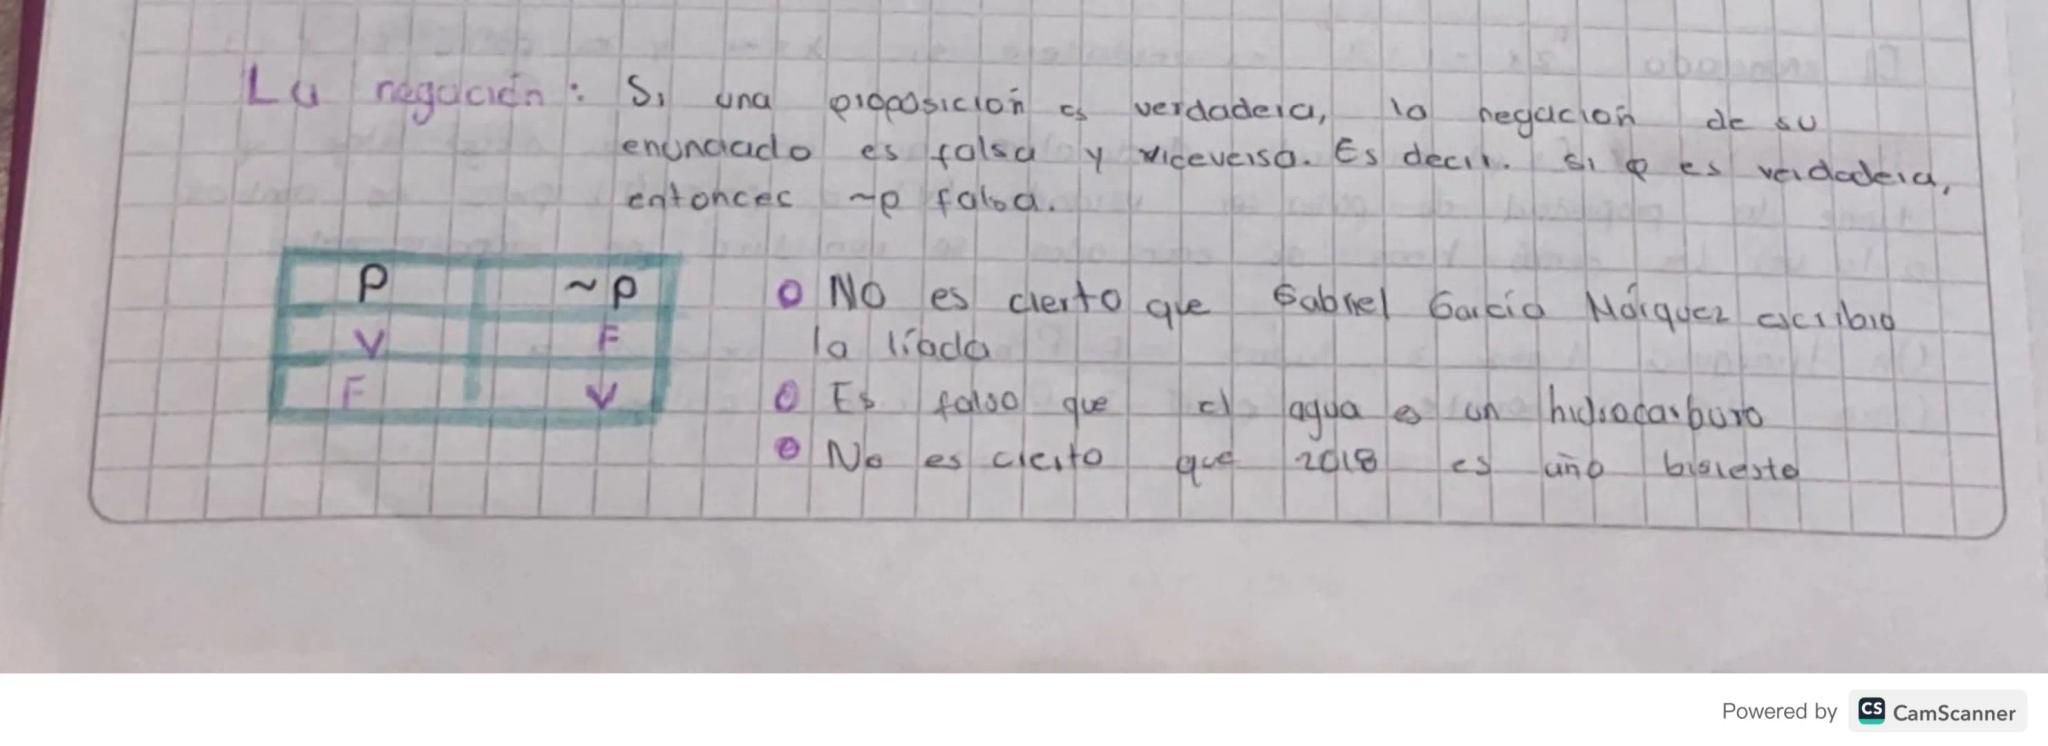 La negación: Si una proposición es verdadera, la negación de su
enunciado es falsa y viceversa. Es decir. si p es verdadera,
entonces ~p falsa.
P ~P
V F
F V
No es cierto que Gabriel García Márquez escribio
la líada
Es falso que el agua es un hidrocarburo
No es cierto que 2018 es año bisiesto
Powered by CS CamScanner